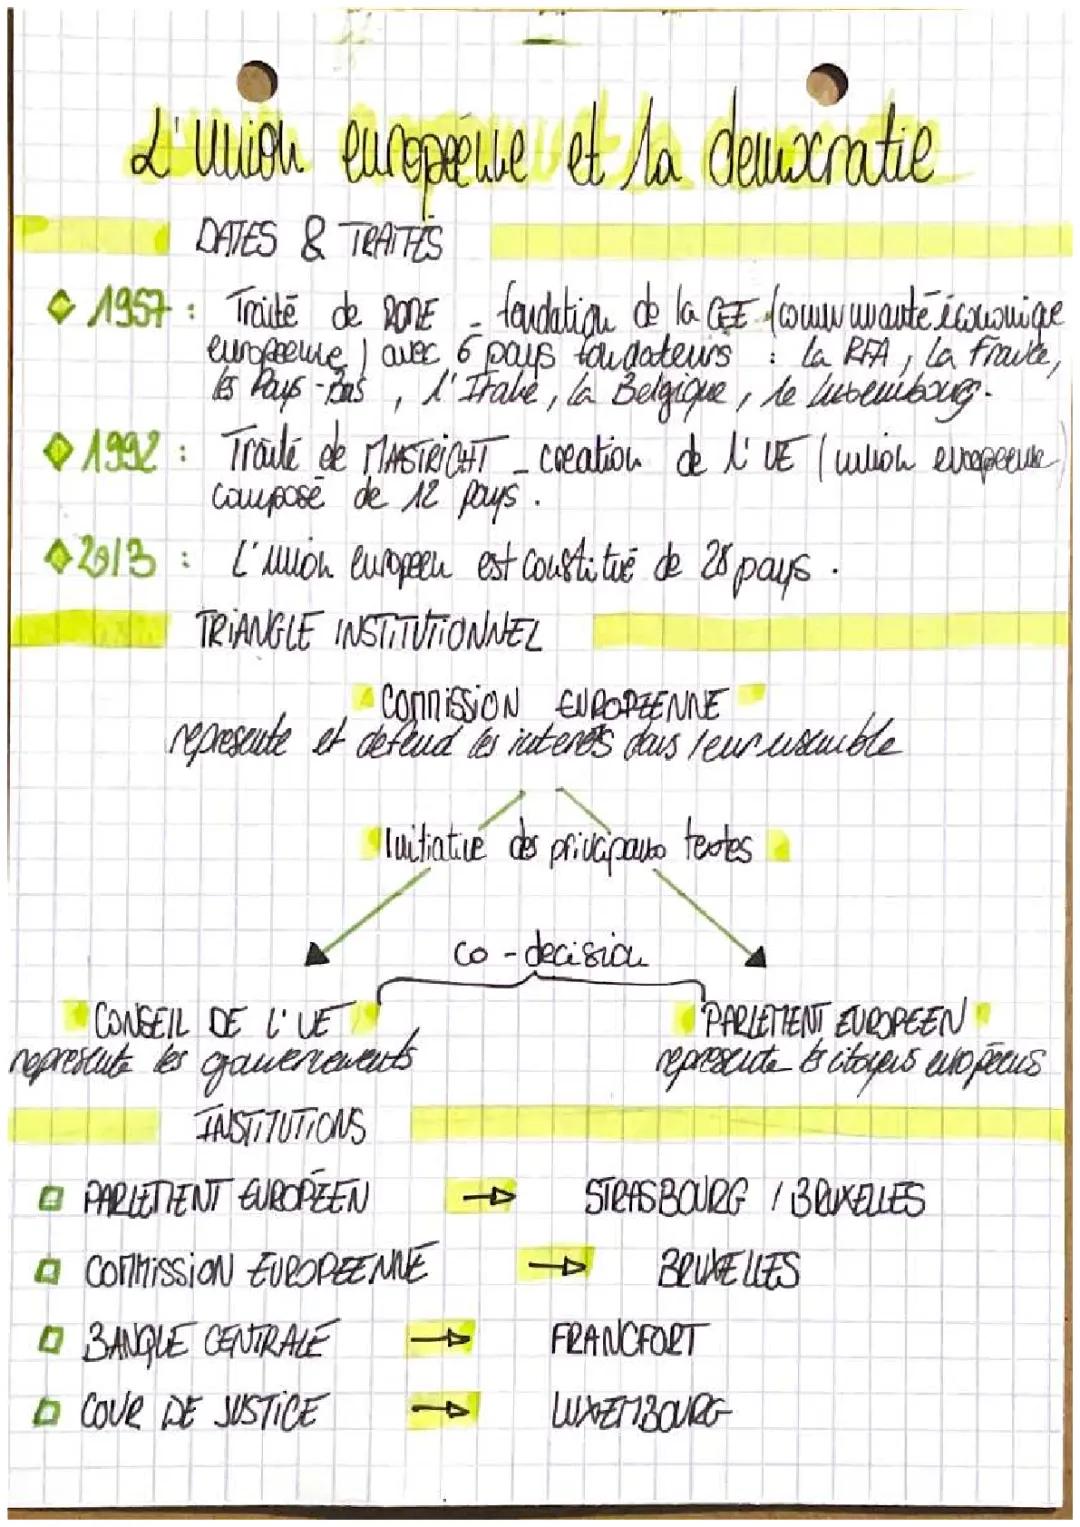 L'union européenne et la democratie
DATES & TRAITÉS
1957 : Traité de ROME - fondation de la CEE (communauté économique
europeenne) avec 6 pays fondateurs : la RFA, la France,
les Pays-Bas, l'Italie, la Belgique, le Luxembourg.
1992 : Traité de MAASTRICHT - creation de l'UE (union europeenne)
composé de 12 pays.
2013 : L'union europeen est constitué de 28 pays.
TRIANGLE INSTITUTIONNEL
COMMISSION EUROPEENNE
represente et defend les interets dans leur ensemble
Initiative des principaux textes
co-decision
CONSEIL DE L'UE
PARLEMENT EUROPEEN
represente les gouvernements
represente les citoyens européens
INSTITUTIONS
PARLEMENT EUROPÉEN → STRASBOURG / BRUXELLES
COMMISSION EUROPEENNE → BRUXELLES
BANQUE CENTRALE → FRANCFORT
COUR DE JUSTICE → LUXEMBOURG